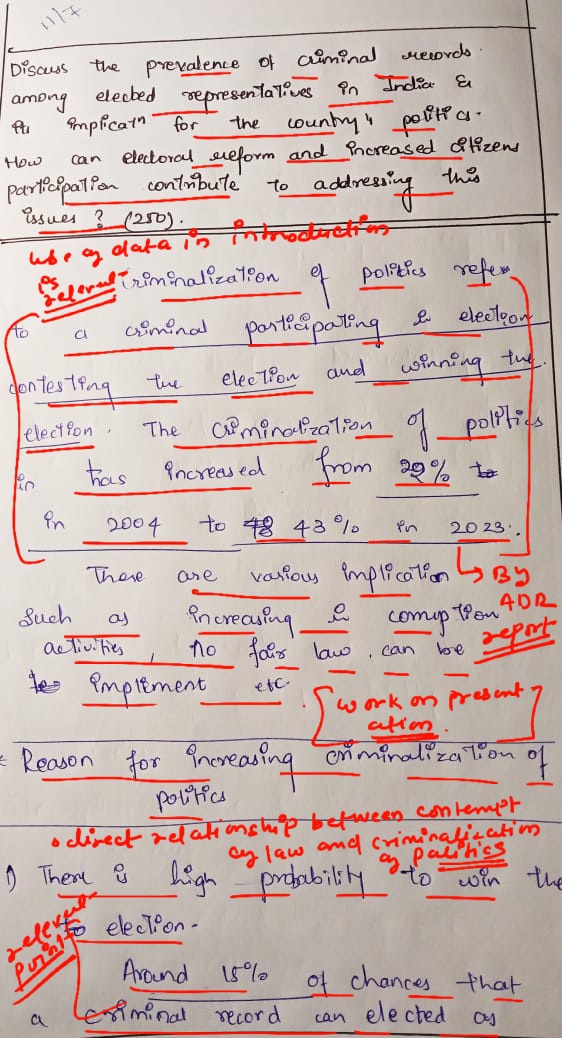 11/7
Discuss the prevalence of criminal records
among elected representatives in India &
its implicatn for the country's politics.
How can electoral reform and increased citizens
participation contribute to addressing this
issues? (250).
use of data in introduction
is relevant
Criminalization of politics refers
to a criminal participating & election
contesting the election and winning the
election. The criminalization of politics
in has increased from 29% to
in 2004 to 43% in 2023.
↳ By
ADR
report
There are various implication
such as increasing & corruption
activities, no fair law can be
implement etc.
[work on present
ation]
Reason for increasing criminalization of
politics
direct relationship between contempt
of law and criminalization
of politics
1) There is high probability to win the
to election.
relevant
point
Around 15% of chances that
a criminal record can elected as